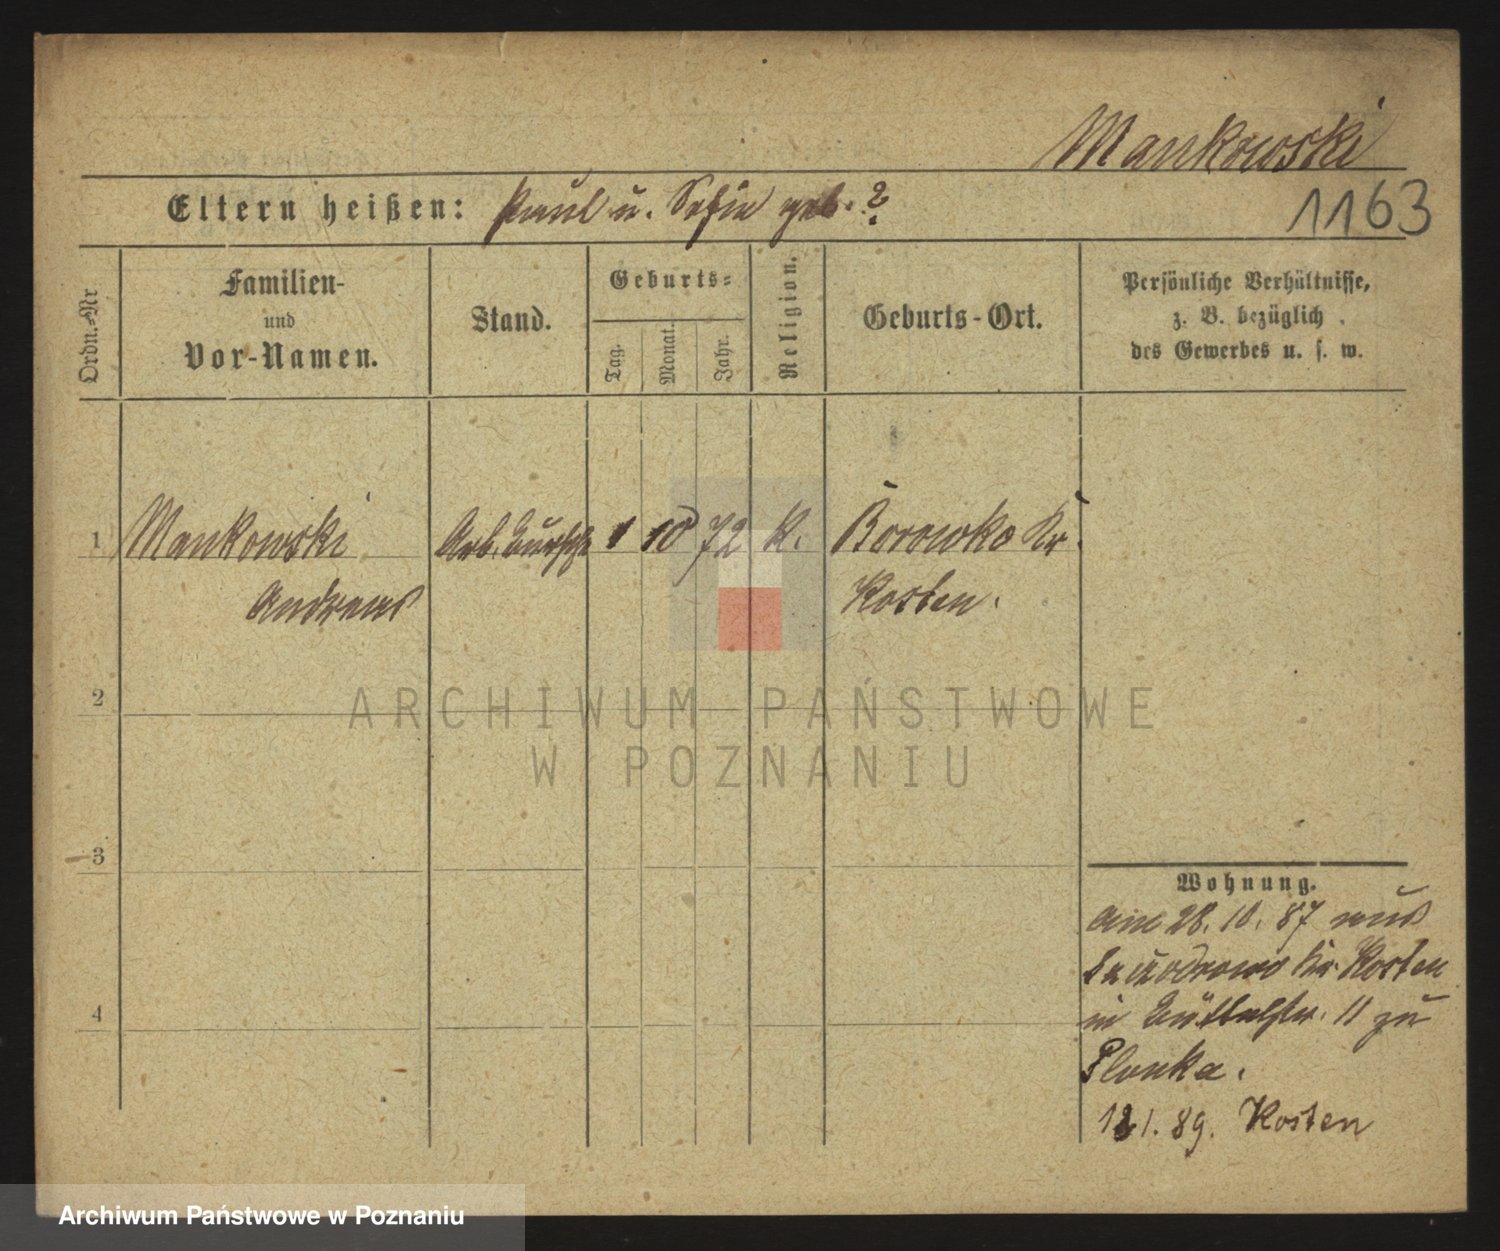 Mankowski
Eltern heißen: Paul u. Sofie geb. ?
1163
Ordn.-Nr
Familien-
und
Vor-Namen.
Stand.
Geburts-
Tag.
Monat.
Jahr.
Religion.
Geburts-Ort.
Persönliche Verhältnisse,
z. B. bezüglich
des Gewerbes u. s. w.
1 Mankowski Arb. bursche 1 10 72 K. Borowko Kr.
Andreas Kosten.
2
ARCHIWUM PAŃSTWOWE
W POZNANIU
3
Wohnung.
am 28. 10. 87 aus
Kr. Kosten
4
in Büttelstr. 11 zu
Plonka.
1. 89. Kosten
Archiwum Państwowe w Poznaniu